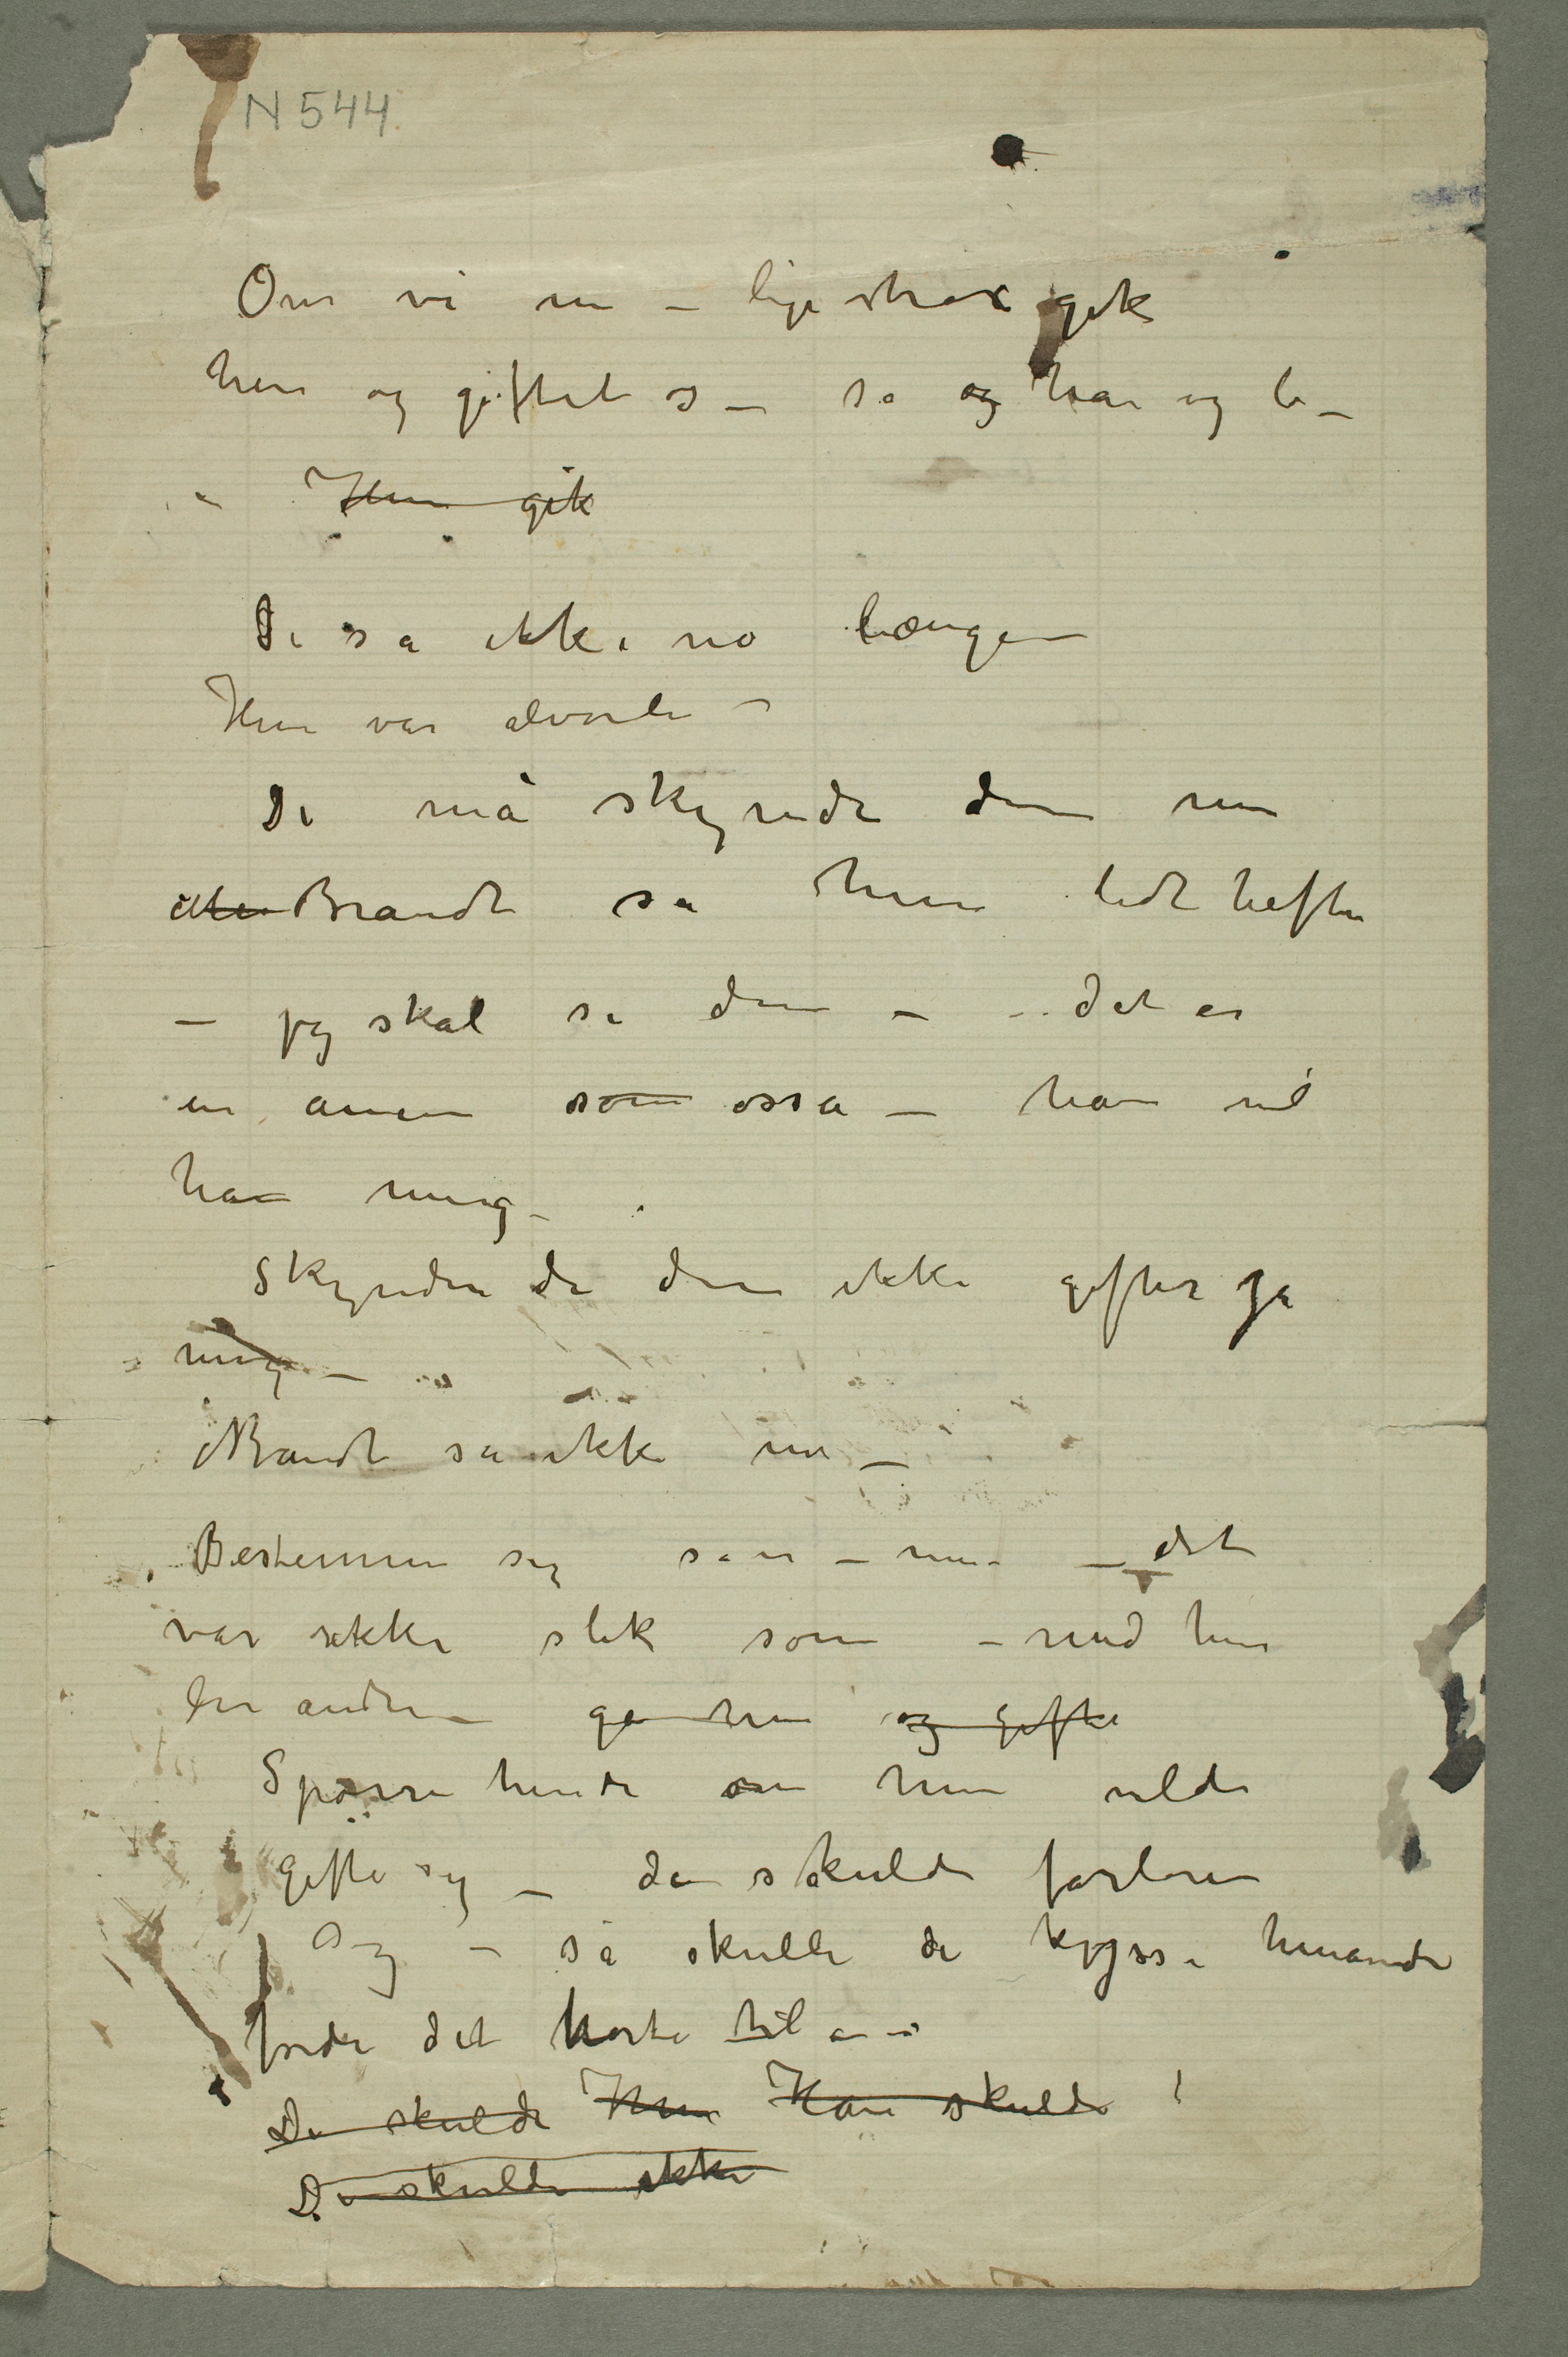 N 544
Om vi nu – lige strax gik
hen og giftet os – sa og han og lo –
– Hun gik
De sa ikke no længe –
Hun var alvorli –
De må skynde dem nu
Brandt sa hun lidt hefti
– jeg skal si dem – – det er
en annen som osså – han vil
ha mig –
Skynder de dem ikke gifter ja
mig –
Brandt sa ikke no –
Bestemme sig sa er – nu – – det
var ikke slik som – med hin
den andre – ga hen og gifte
Spørre hende om hun vilde
gifte sig – de skulde forlove
sig – så skulle de kysse hinande
fordi det hørte til – –
De skulde Hun Han skulde !
De skulde ikke